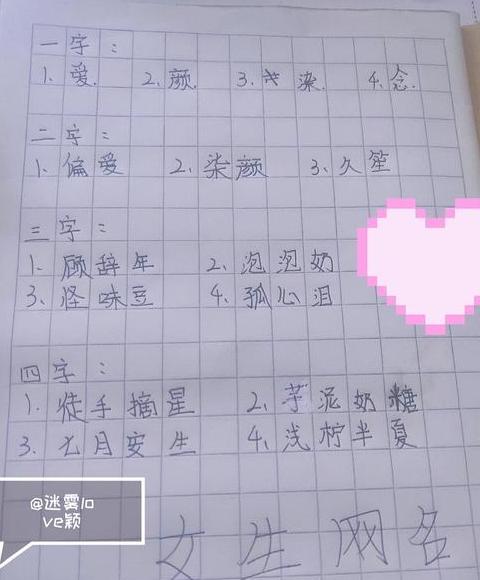 一字：
1. 爱. 2. 颜. 3. 染. 4. 念.
二字：
1. 偏爱 2. 柒颜 3. 久笙
三字：
1. 顾辞年 2. 泡泡奶
3. 怪味豆 4. 孤心泪
四字：
1. 徒手摘星 2. 芋泥奶糖
3. 七月安生 4. 浅柠半夏
@迷雾lo
ve颖
女生网名